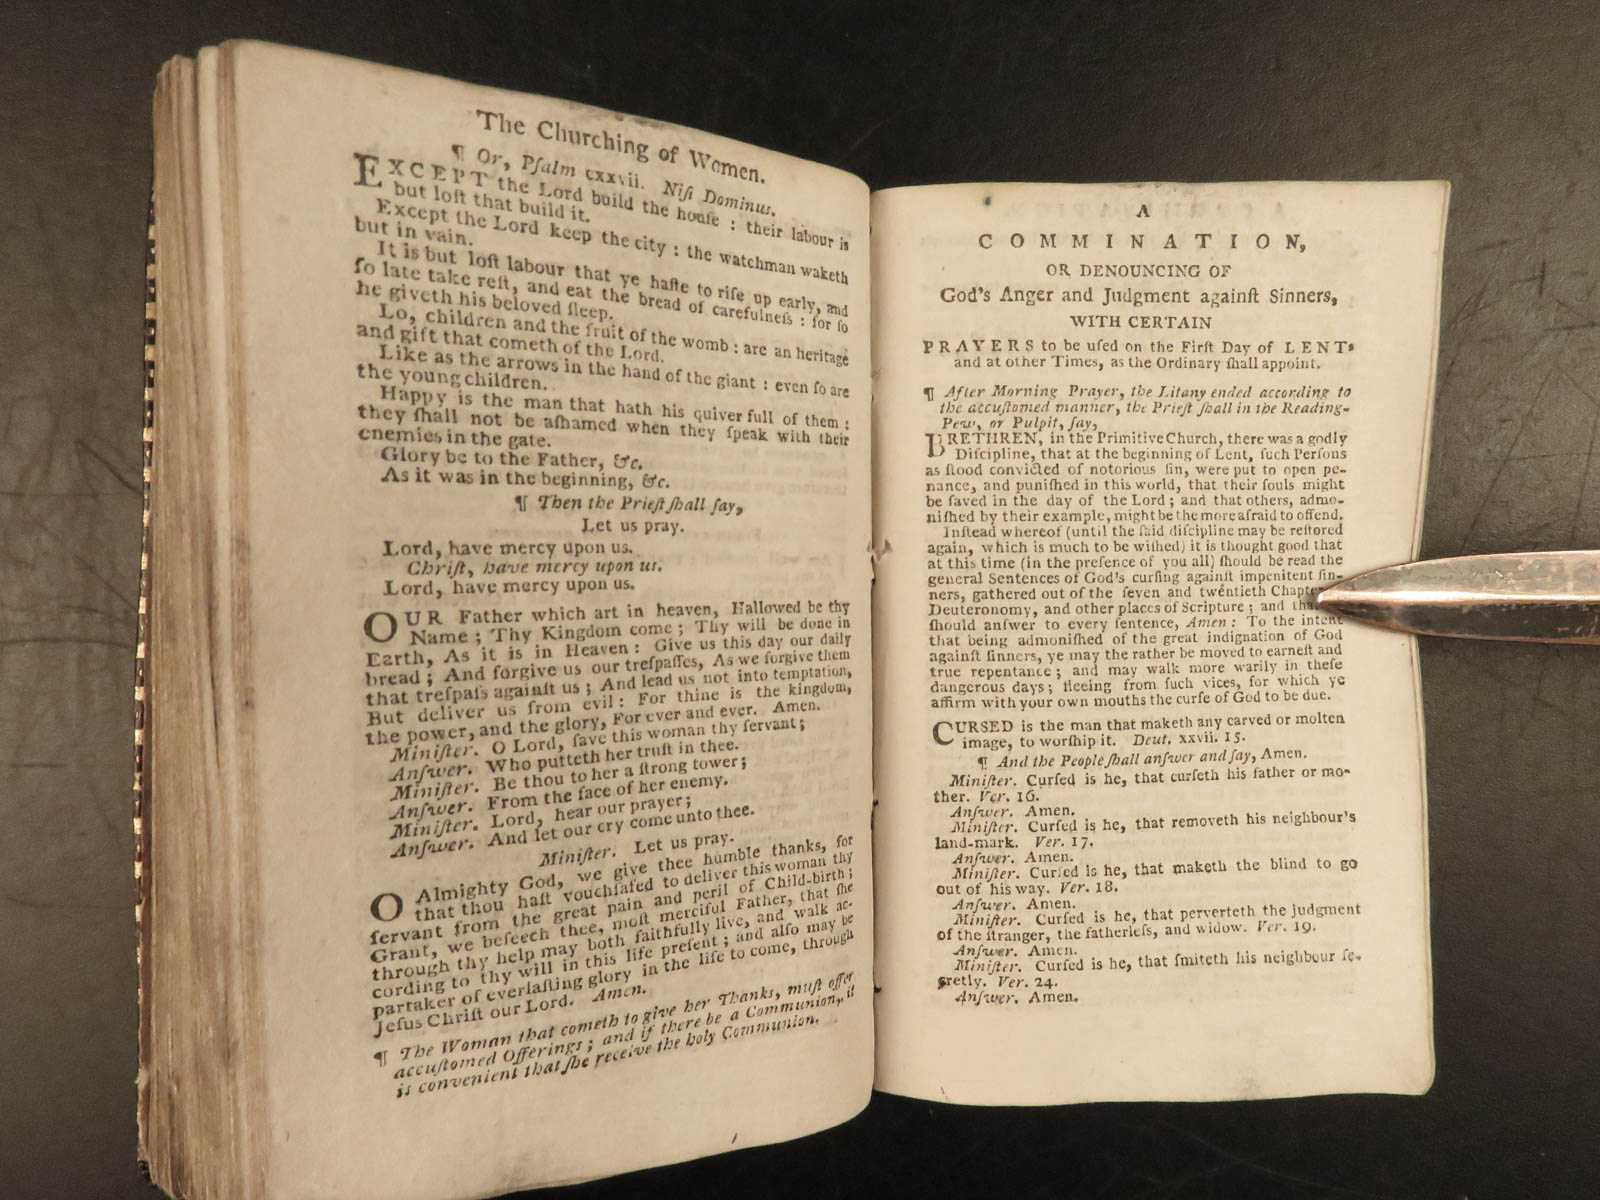 The Churching of Women.
¶ Or, Pſalm cxxvii. Niſi Dominus.
EXCEPT the Lord build the houſe : their labour is
but loſt that build it.
Except the Lord keep the city : the watchman waketh
but in vain.
It is but loſt labour that ye haſte to riſe up early, and
ſo late take reſt, and eat the bread of carefulneſs : for ſo
he giveth his beloved ſleep.
Lo, children and the fruit of the womb : are an heritage
and gift that cometh of the Lord.
Like as the arrows in the hand of the giant : even ſo are
the young children.
Happy is the man that hath his quiver full of them :
they ſhall not be aſhamed when they ſpeak with their
enemies in the gate.
Glory be to the Father, &c.
As it was in the beginning, &c.
¶ Then the Prieſt ſhall ſay,
Let us pray.
Lord, have mercy upon us.
Chriſt, have mercy upon us.
Lord, have mercy upon us.
OUR Father which art in heaven, Hallowed be thy
Name ; Thy Kingdom come ; Thy will be done in
Earth, As it is in Heaven : Give us this day our daily
bread ; And forgive us our treſpaſſes, As we forgive them
that treſpaſs againſt us ; And lead us not into temptation,
But deliver us from evil : For thine is the kingdom,
the power, and the glory, For ever and ever. Amen.
Miniſter. O Lord, ſave this woman thy ſervant ;
Anſwer. Who putteth her truſt in thee.
Miniſter. Be thou to her a ſtrong tower ;
Anſwer. From the face of her enemy.
Miniſter. Lord, hear our prayer ;
Anſwer. And let our cry come unto thee.
Miniſter. Let us pray.
O Almighty God, we give thee humble thanks, for
that thou haſt vouchſafed to deliver this woman thy
ſervant from the great pain and peril of Child-birth ;
Grant, we beſeech thee, moſt merciful Father, that ſhe
through thy help may both faithfully live, and walk ac-
cording to thy will in this life preſent ; and alſo may be
partaker of everlaſting glory in the life to come, through
Jeſus Chriſt our Lord. Amen.
¶ The Woman that cometh to give her Thanks, muſt offer
accuſtomed Offerings ; and if there be a Communion, it
is convenient that ſhe receive the holy Communion.
A
COMMINATION,
OR DENOUNCING OF
God's Anger and Judgment againſt Sinners,
WITH CERTAIN
PRAYERS to be uſed on the Firſt Day of LENT,
and at other Times, as the Ordinary ſhall appoint.
¶ After Morning Prayer, the Litany ended according to
the accuſtomed manner, the Prieſt ſhall in the Reading-
Pew, or Pulpit, ſay,
BRETHREN, in the Primitive Church, there was a godly
Diſcipline, that at the beginning of Lent, ſuch Perſons
as ſtood convicted of notorious ſin, were put to open pe-
nance, and puniſhed in this world, that their ſouls might
be ſaved in the day of the Lord ; and that others, admo-
niſhed by their example, might be the more afraid to offend.
Inſtead whereof (until the ſaid diſcipline may be reſtored
again, which is much to be wiſhed) it is thought good that
at this time (in the preſence of you all) ſhould be read the
general Sentences of God's curſing againſt impenitent ſin-
ners, gathered out of the ſeven and twentieth Chapte
Deuteronomy, and other places of Scripture ; and tha
ſhould anſwer to every ſentence, Amen : To the intent
that being admoniſhed of the great indignation of God
againſt ſinners, ye may the rather be moved to earneſt and
true repentance ; and may walk more warily in theſe
dangerous days ; fleeing from ſuch vices, for which ye
affirm with your own mouths the curſe of God to be due.
CURSED is the man that maketh any carved or molten
image, to worſhip it. Deut. xxvii. 15.
¶ And the People ſhall anſwer and ſay, Amen.
Miniſter. Curſed is he, that curſeth his father or mo-
ther. Ver. 16.
Anſwer. Amen.
Miniſter. Curſed is he, that removeth his neighbour's
land-mark. Ver. 17.
Anſwer. Amen.
Miniſter. Curſed is he, that maketh the blind to go
out of his way. Ver. 18.
Anſwer. Amen.
Miniſter. Curſed is he, that perverteth the judgment
of the ſtranger, the fatherleſs, and widow. Ver. 19.
Anſwer. Amen.
Miniſter. Curſed is he, that ſmiteth his neighbour ſe-
cretly. Ver. 24.
Anſwer. Amen.